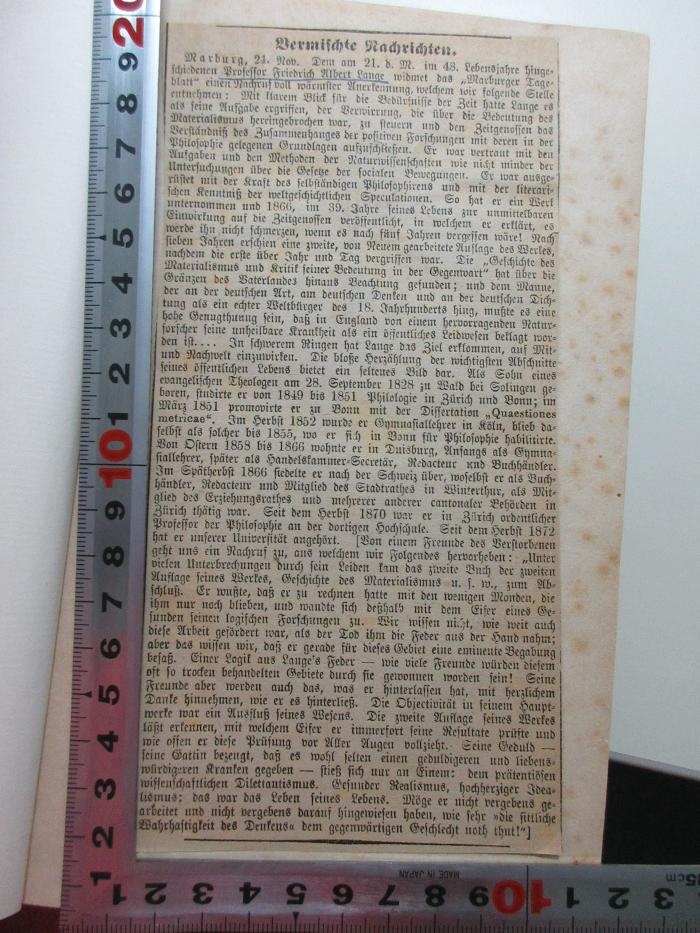 Vermischte Nachrichten.
Marburg, 23. Nov. Dem am 21. d. M. im 48. Lebensjahre hinge-
schiedenen Professor Friedrich Albert Lange widmet das „Marburger Tage-
blatt“ einen Nachruf voll wärmster Anerkennung, welchem wir folgende Stelle
entnehmen: Mit klarem Blick für die Bedürfnisse der Zeit hatte Lange es
als seine Aufgabe ergriffen, der Verwirrung, die über die Bedeutung des
Materialismus hereingebrochen war, zu steuern und den Zeitgenossen das
Verständniß des Zusammenhanges der positiven Forschungen mit deren in der
Philosophie gelegenen Grundlagen aufzuschließen. Er war vertraut mit den
Aufgaben und den Methoden der Naturwissenschaften wie nicht minder der
Untersuchungen über die Gesetze der socialen Bewegungen. Er war ausge-
rüstet mit der Kraft des selbständigen Philosophirens und mit der literari-
schen Kenntniß der weltgeschichtlichen Speculationen. So hat er ein Werk
unternommen und 1866, im 39. Jahre seines Lebens zur unmittelbaren
Einwirkung auf die Zeitgenossen veröffentlicht, in welchem er erklärt, es
werde ihn nicht schmerzen, wenn es nach fünf Jahren vergessen wäre! Nach
sieben Jahren erschien eine zweite, von Neuem gearbeitete Auflage des Werkes,
nachdem die erste über Jahr und Tag vergriffen war. Die „Geschichte des
Materialismus und Kritik seiner Bedeutung in der Gegenwart“ hat über die
Gränzen des Vaterlandes hinaus Beachtung gefunden; und dem Manne,
der an der deutschen Art, am deutschen Denken und an der deutschen Dich-
tung als ein echter Weltbürger des 18. Jahrhunderts hing, mußte es eine
hohe Genugthuung sein, daß in England von einem hervorragenden Natur-
forscher seine unheilbare Krankheit als ein öffentliches Leidwesen beklagt wor-
den ist.... In schwerem Ringen hat Lange das Ziel erklommen, auf Mit-
und Nachwelt einzuwirken. Die bloße Herzählung der wichtigsten Abschnitte
seines öffentlichen Lebens bietet ein seltenes Bild dar. Als Sohn eines
evangelischen Theologen am 28. September 1828 zu Wald bei Solingen ge-
boren, studirte er von 1849 bis 1851 Philologie in Zürich und Bonn; im
März 1851 promovirte er zu Bonn mit der Dissertation „Quaestiones
metricae“. Im Herbst 1852 wurde er Gymnasiallehrer in Köln, blieb da-
selbst als solcher bis 1855, wo er sich in Bonn für Philosophie habilitirte.
Von Ostern 1858 bis 1866 wohnte er in Duisburg, Anfangs als Gymna-
siallehrer, später als Handelskammer-Secretär, Redacteur und Buchhändler.
Im Spätherbst 1866 siedelte er nach der Schweiz über, woselbst er als Buch-
händler, Redacteur und Mitglied des Stadtrathes in Winterthur, als Mit-
glied des Erziehungsrathes und mehrerer anderer cantonaler Behörden in
Zürich thätig war. Seit dem Herbst 1870 war er in Zürich ordentlicher
Professor der Philosophie an der dortigen Hochschule. Seit dem Herbst 1872
hat er unserer Universität angehört. [Von einem Freunde des Verstorbenen
geht uns ein Nachruf zu, aus welchem wir Folgendes hervorheben: „Unter
vielen Unterbrechungen durch sein Leiden kam das zweite Buch der zweiten
Auflage seines Werkes, Geschichte des Materialismus u. s. w., zum Ab-
schluß. Er wußte, daß er zu rechnen hatte mit den wenigen Monden, die
ihm nur noch blieben, und wandte sich deßhalb mit dem Eifer eines Ge-
sunden seinen logischen Forschungen zu. Wir wissen nicht, wie weit auch
diese Arbeit gefördert war, als der Tod ihm die Feder aus der Hand nahm;
aber das wissen wir, daß er gerade für dieses Gebiet eine eminente Begabung
besaß. Einer Logik aus Lange's Feder — wie viele Freunde würden diesem
oft so trocken behandelten Gebiete durch sie gewonnen worden sein! Seine
Freunde aber werden auch das, was er hinterlassen hat, mit herzlichem
Danke hinnehmen, wie er es hinterließ. Die Objectivität in seinem Haupt-
werke war ein Ausfluß seines Wesens. Die zweite Auflage seines Werkes
läßt erkennen, mit welchem Eifer er immerfort seine Resultate prüfte und
wie offen er diese Prüfung vor Aller Augen vollzieht. Seine Geduld —
seine Gattin bezeugt, daß es wohl selten einen geduldigeren und liebens-
würdigeren Kranken gegeben — stieß sich nur an Einem: dem prätentiösen
wissenschaftlichen Dilettantismus. Gesunder Realismus, hochherziger Idea-
lismus: das war das Leben seines Lebens. Möge er nicht vergebens ge-
arbeitet und nicht vergebens darauf hingewiesen haben, wie sehr »die sittliche
Wahrhaftigkeit des Denkens« dem gegenwärtigen Geschlecht noth thut!“]
20
9
8
7
6
5
4
3
2
1
10
9
8
7
6
5
4
3
2
1
1 2 3 4 5 6 7 8 9 10 1 2 3
MADE IN JAPAN
15cm